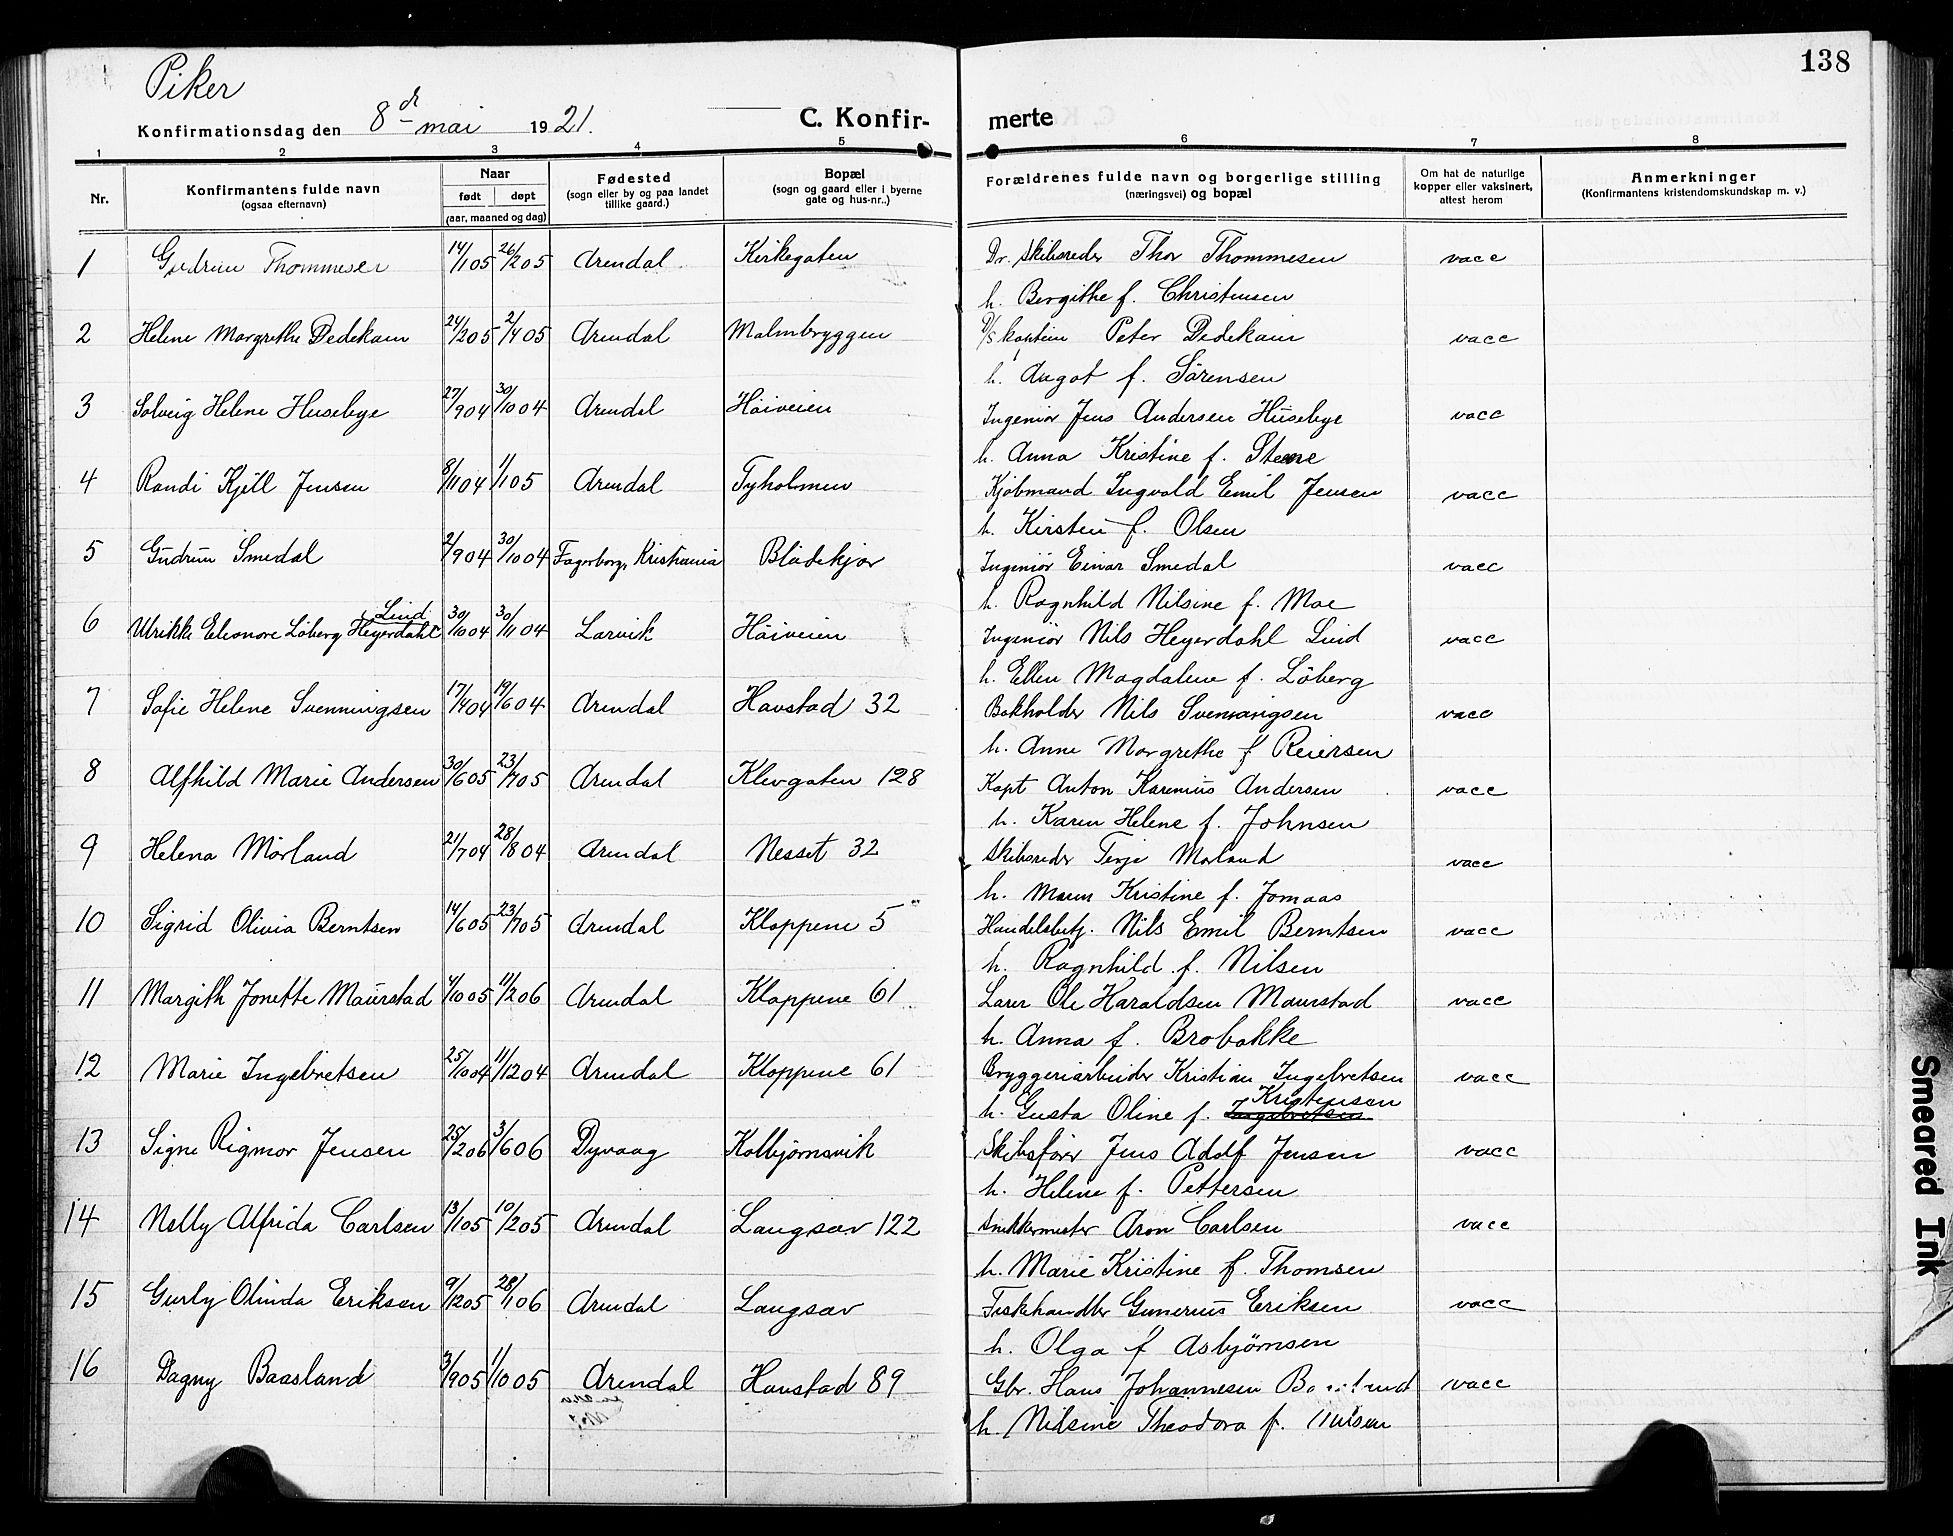 138
Piker
Konfirmationsdag den 8de mai 1921.
C. Konfir- merte
1 2 3 4 5 6 7 8
Nr. Konfirmantens fulde navn (ogsaa efternavn) Naar født døpt (aar, maaned og dag) Fødested (sogn eller by og paa landet tillike gaard.) Bopæl (sogn og gaard eller i byerne gate og hus-nr..) Forældrenes fulde navn og borgerlige stilling (næringsvei) og bopæl Om hat de naturlige kopper eller vaksinert, attest herom Anmerkninger (Konfirmantens kristendomskundskap m. v.)
1 Gudrun Thommesen 14/1 05 26/2 05 Arendal Kirkegaten Dr. Skibsreder Thor Thommesen vacc
h. Bergithe f. Christensen
2 Helene Margrethe Dedekam 24/2 05 2/4 05 Arendal Malmbryggen D/S kaptein Peter Dedekam vacc
h. Aagot f. Sörensen
3 Solveig Helene Husebye 27/9 04 30/10 04 Arendal Höiveien Ingeniör Jens Andersen Husebye vacc
h. Anna Kristine f. Stene
4 Randi Kjell Jensen 8/11 04 1/1 05 Arendal Tyholmen Kjöbmand Ingvald Emil Jensen vacc
h. Kirsten f. Olsen
5 Gudrun Smedal 2/9 04 30/10 04 Fagerborg, Kristiania Blödekjær Ingeniör Einar Smedal vacc
h. Ragnhild Nilsine f. Moe
6 Ulrikke Eleonore Löberg Heyerdahl Lind 30/10 04 30/11 04 Larvik Höiveien Ingeniör Nils Heyerdahl Lind vacc
h. Ellen Magdalene f. Löberg
7 Sofie Helene Svenningsen 17/4 04 19/6 04 Arendal Havstad 32 Bokholder Nils Svenningsen vacc
h. Anne Margrethe f Reiersen
8 Alfhild Marie Andersen 30/6 05 23/7 05 Arendal Klevgaten 128 Kapt Anton Karenius Andersen vacc
h. Karen Helene f. Johnsen
9 Helena Mörland 21/7 04 28/8 04 Arendal Nesset 32 Skibsreder Terje Mörland vacc
h. Maren Kristine f. Jomaas
10 Sigrid Olivia Berntsen 14/6 05 23/7 05 Arendal Kloppene 5 Handelsbetj. Nils Emil Berntsen vacc
h. Ragnhild f. Nilsen
11 Margith Jonette Maurstad 4/10 05 11/2 06 Arendal Kloppene 61. Lærer Ole Haraldsen Maurstad vacc
h. Anna f. Brobakke
12 Marie Ingebretsen 25/10 04 11/12 04 Arendal Kloppene 61 Bryggeriarbeider Kristian Ingebretsen vacc
h. Gusta Oline f. Ingebretsen Kristensen
13 Signe Rigmor Jensen 25/2 06 3/6 06 Dyvaag Kolbjørnsvik Skibsfører Jens Adolf Jensen vacc
h. Helene f. Pettersen
14 Nelly Alfrida Carlsen 13/1 05 10/2 05 Arendal Langsæv 122 Snekkermester Aron Carlsen vacc
h. Marie Kristine f. Thomsen
15 Gurly Olinda Eriksen 9/12 05 28/1 06 Arendal Langsæv Fiskehandler Gunerius Eriksen vacc
h. Olga f Asbjørnsen
16 Dagny Baasland 3/9 05 1/10 05 Arendal Havstad 89 Gbr. Hans Johannesen Baasland vacc
h. Nilsine Theodora f. Nilsen
Smeared Ink